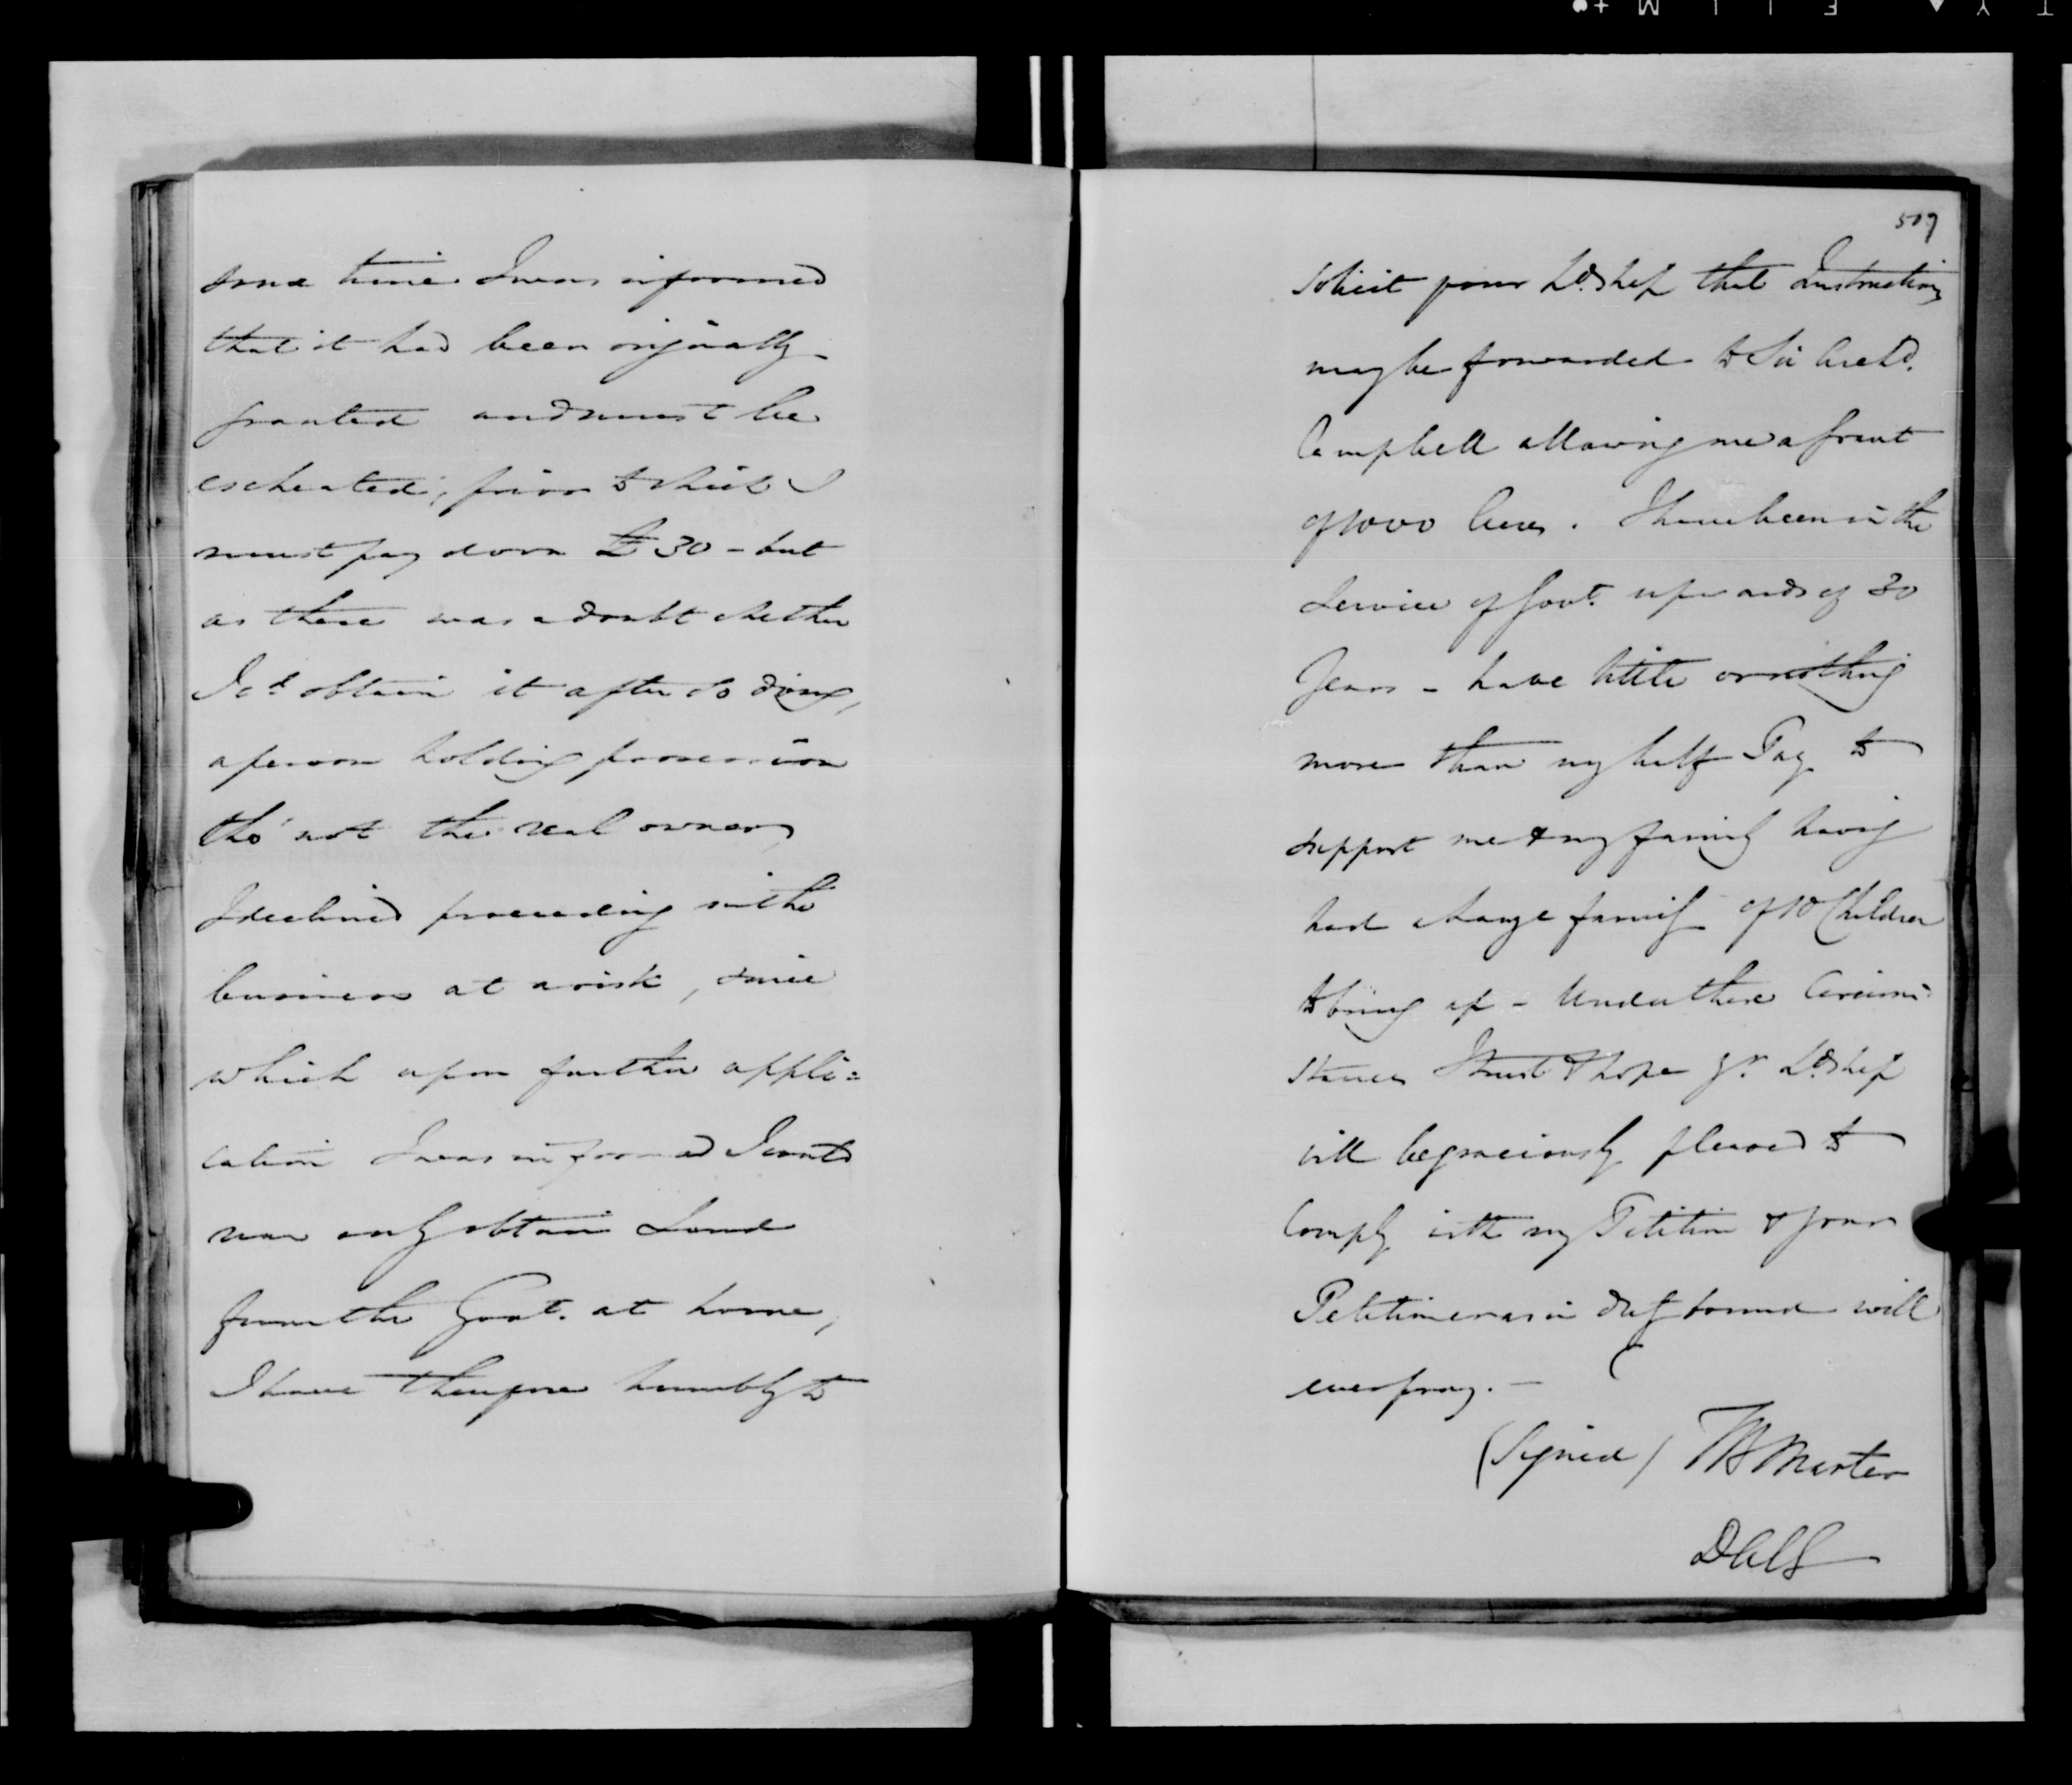 some time I was informed
that it had been originally
granted and must be
escheated, prior to which I
must pay down £30 - but
as there was a doubt whether
I cd. obtain it after so doing,
a person holding possession
tho' not the real owner,
I declined proceeding in the
business at a risk, since
which upon further appli=
cation I was informed I could
now only obtain Land
from the Govt. at home,
I have therefore humbly to
509
solicit your Ldship that Instructions
may be forwarded to Sir Archd.
Campbell allowing me a grant
of 1000 Acres. I have been in the
Service of Govt. upwards of 30
Years - have little or nothing
more than my half Pay to
support me & my family having
had a large family of 10 Children
to bring up - Under these Circum-
stances I trust & hope yr. Ldship
will be graciously pleased to
Comply with my Petition & your
Petitioner as in duty bound will
ever pray. -
(Signed) Marter